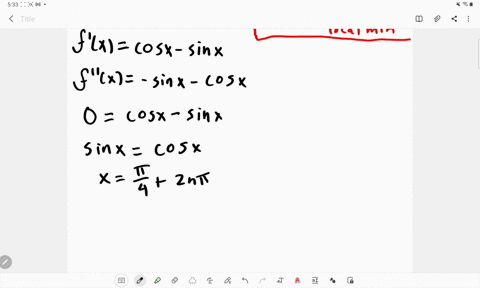 5:33
Title
local min
f'(x) = cosx - sinx
f''(x) = -sinx - cosx
0 = cosx - sinx
sinx = cosx
x = π/4 + 2nπ